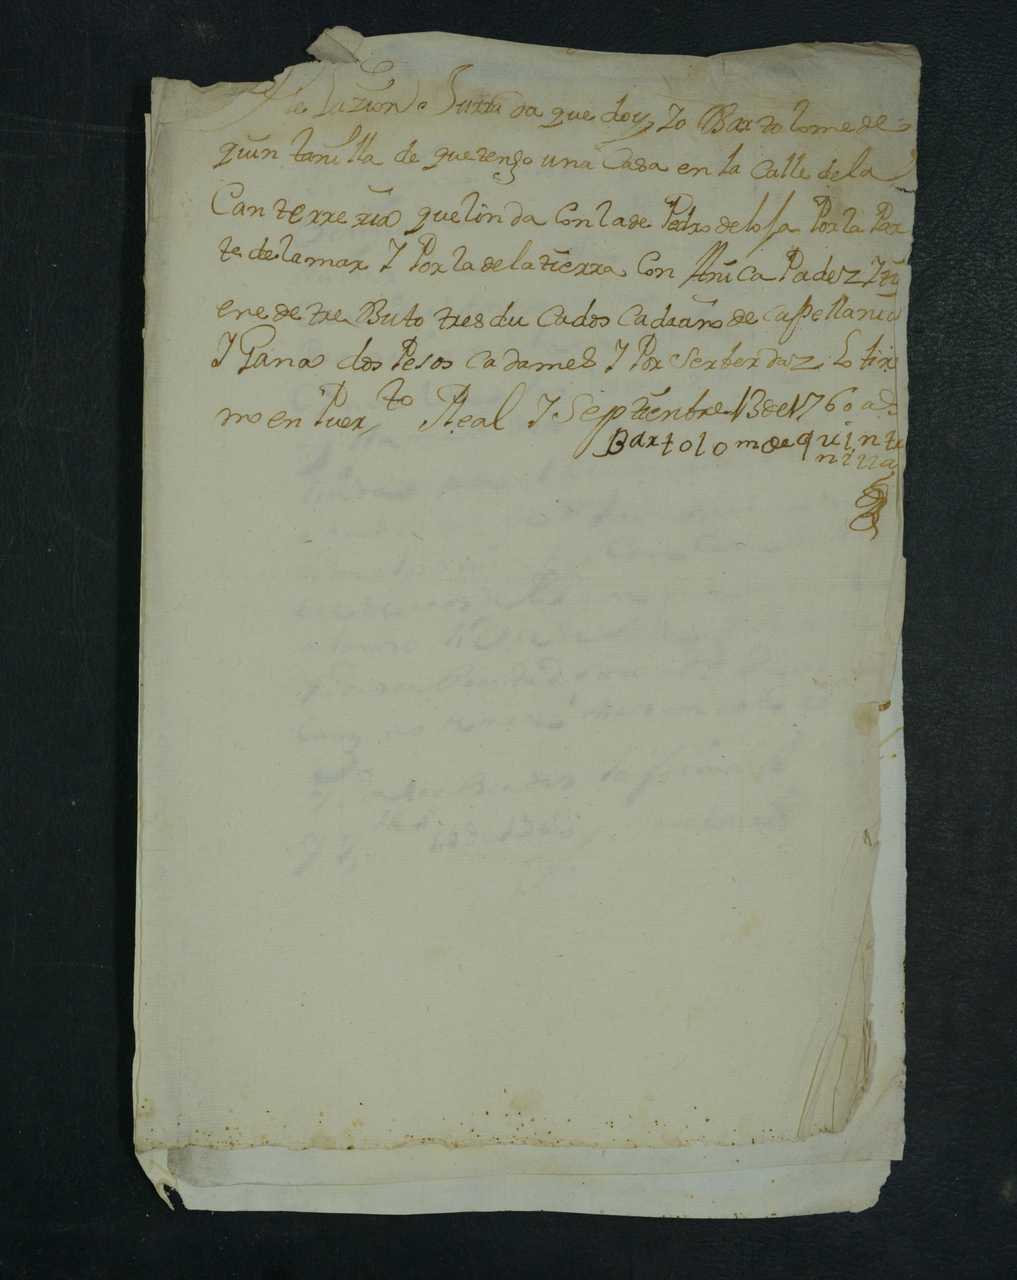 Relazion Jurada que doy Yo Bartolome de
quintanilla de que tengo una Casa en la calle de la
Canterreria que linda Con la de Pedro de losa Por la Par
te de la mar Y Por la de la tierra Con Padez Y ti
ene de tre Buto tres du Cados Cadaaño de Capellania
Y Gana dos Pesos cadames Y Por ser berdaz lo fir
mo en Puerto Real Y Septienbre 13 de 1760 as
Bartolome de quinta
nilla